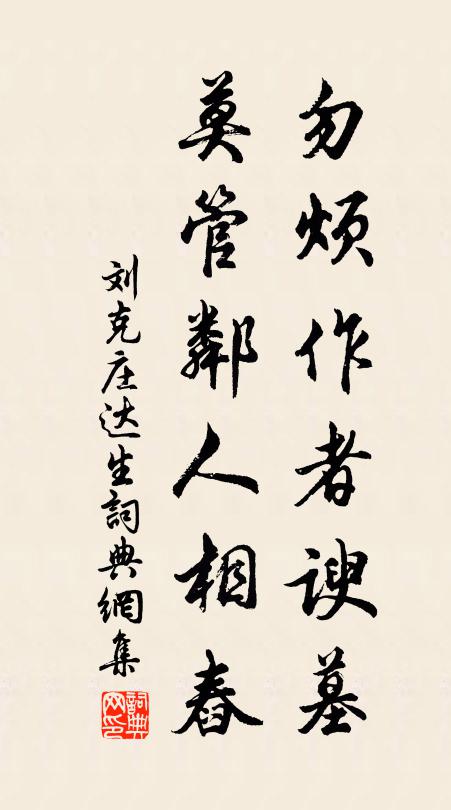 勿烦作者谀墓
莫管鄰人相舂
刘克庄达生詞典網集
詞典网印